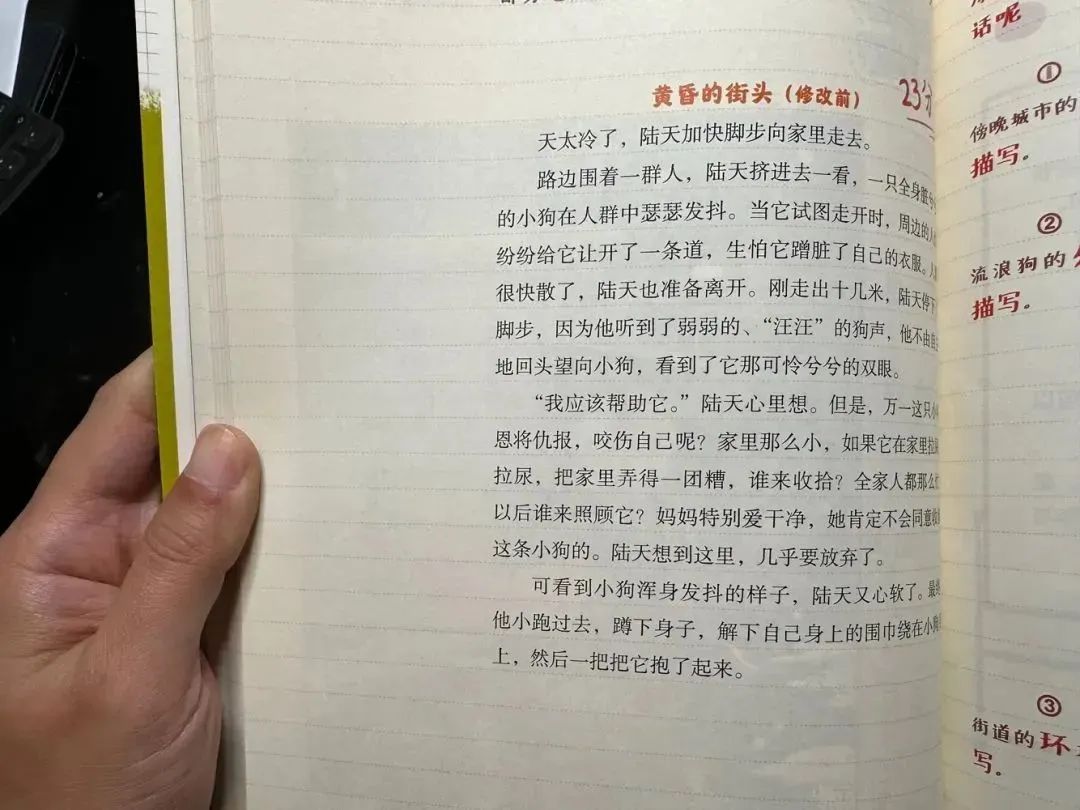 黄昏的街头（修改前）
23分
天太冷了，陆天加快脚步向家里走去。
路边围着一群人，陆天挤进去一看，一只全身脏兮
的小狗在人群中瑟瑟发抖。当它试图走开时，周边的人
纷纷给它让开了一条道，生怕它蹭脏了自己的衣服。人
很快散了，陆天也准备离开。刚走出十几米，陆天停下
脚步，因为他听到了弱弱的、“汪汪”的狗声，他不由
地回头望向小狗，看到了它那可怜兮兮的双眼。
“我应该帮助它。”陆天心里想。但是，万一这只小
恩将仇报，咬伤自己呢？家里那么小，如果它在家里拉
拉尿，把家里弄得一团糟，谁来收拾？全家人都那么
以后谁来照顾它？妈妈特别爱干净，她肯定不会同意收
这条小狗的。陆天想到这里，几乎要放弃了。
可看到小狗浑身发抖的样子，陆天又心软了。最
他小跑过去，蹲下身子，解下自己身上的围巾绕在小狗
上，然后一把把它抱了起来。
话呢
①
傍晚城市的
描写。
②
流浪狗的
描写。
③
街道的环
写。